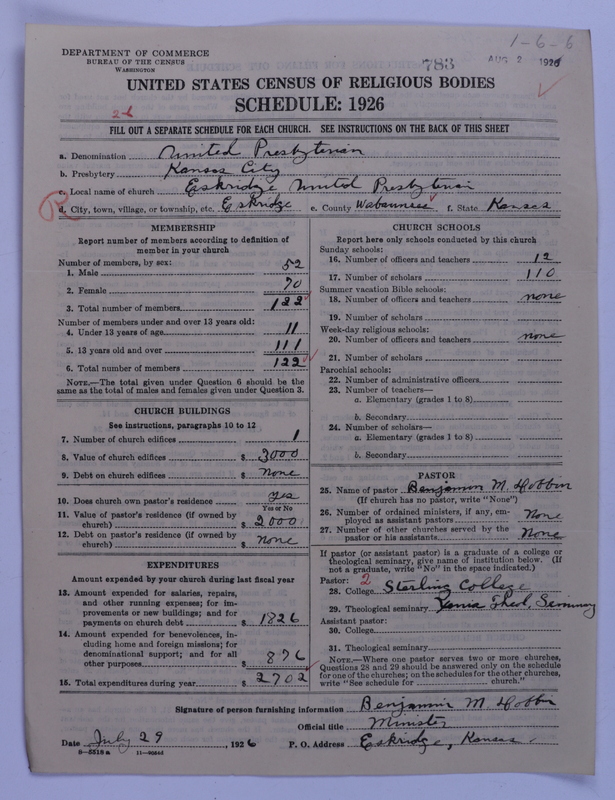 1-6-6
783
AUG 2 1926
DEPARTMENT OF COMMERCE
BUREAU OF THE CENSUS
WASHINGTON
UNITED STATES CENSUS OF RELIGIOUS BODIES
SCHEDULE: 1926
2-6
FILL OUT A SEPARATE SCHEDULE FOR EACH CHURCH. SEE INSTRUCTIONS ON THE BACK OF THIS SHEET
a. Denomination United Presbyterian
b. Presbytery Kansas City
c. Local name of church Eskridge United Presbyterian
R
d. City, town, village, or township, etc. Eskridge e. County Wabaunsee f. State Kansas
MEMBERSHIP
Report number of members according to definition of
member in your church
Number of members, by sex:
1. Male 52
2. Female 70
3. Total number of members 122
Number of members under and over 13 years old:
4. Under 13 years of age 11
5. 13 years old and over 111
6. Total number of members 122
NOTE.—The total given under Question 6 should be the
same as the total of males and females given under Question 3.
CHURCH BUILDINGS
See instructions, paragraphs 10 to 12
7. Number of church edifices 1
8. Value of church edifices $ 3000
9. Debt on church edifices $ None
10. Does church own pastor's residence yes
Yes or No
11. Value of pastor's residence (if owned by
church) $ 2000
12. Debt on pastor's residence (if owned by
church) $ None
EXPENDITURES
Amount expended by your church during last fiscal year
13. Amount expended for salaries, repairs,
and other running expenses; for im-
provements or new buildings; and for
payments on church debt $ 1826
14. Amount expended for benevolences, in-
cluding home and foreign missions; for
denominational support; and for all
other purposes $ 876
15. Total expenditures during year $ 2702
CHURCH SCHOOLS
Report here only schools conducted by this church
Sunday schools:
16. Number of officers and teachers 12
17. Number of scholars 110
Summer vacation Bible schools:
18. Number of officers and teachers none
19. Number of scholars
Week-day religious schools:
20. Number of officers and teachers none
21. Number of scholars
Parochial schools:
22. Number of administrative officers
23. Number of teachers—
a. Elementary (grades 1 to 8)
b. Secondary
24. Number of scholars—
a. Elementary (grades 1 to 8)
b. Secondary
PASTOR
25. Name of pastor Benjamin M. Hobbin
(If church has no pastor, write "None")
26. Number of ordained ministers, if any, em-
ployed as assistant pastors None
27. Number of other churches served by the
pastor or his assistants None
If pastor (or assistant pastor) is a graduate of a college or
theological seminary, give name of institution below. (If
not a graduate, write "No" in the space indicated.)
Pastor: 2
28. College Sterling College
29. Theological seminary Xenia Theol. Seminary
Assistant pastor:
30. College
31. Theological seminary
NOTE.—Where one pastor serves two or more churches,
Questions 28 and 29 should be answered only on the schedule
for one of the churches; on the schedules for the other churches,
write "See schedule for church."
Signature of person furnishing information Benjamin M. Hobbin
Official title Minister
Date July 29, 1926 P. O. Address Eskridge, Kansas.
8-5518a